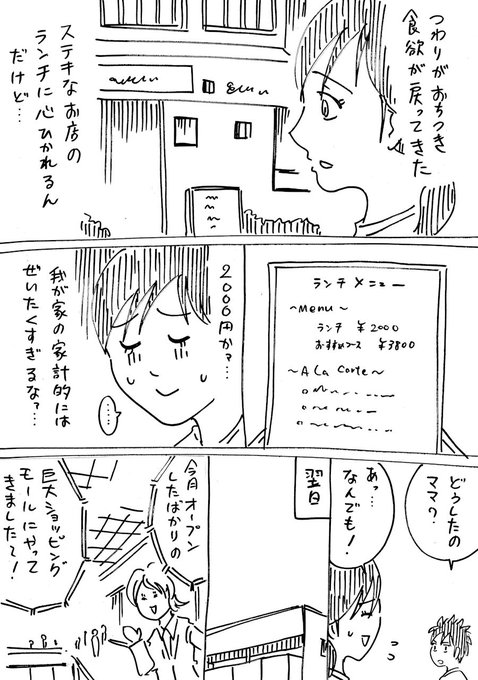 つわりがおちつき
食欲が戻ってきた
ステキなお店の
ランチに心ひかれるん
だけど…
ランチメニュー
～Menu～
ランチ ¥2000
おすすめコース ¥3800
～A La Carte～
2000円か?…
我が家の家計的には
ぜいたくすぎるな?…
……
どうしたの
ママ?
あっ…
なんでも!
翌日
今月オープン
したばかりの
巨大ショッピング
モールにやって
きました～!